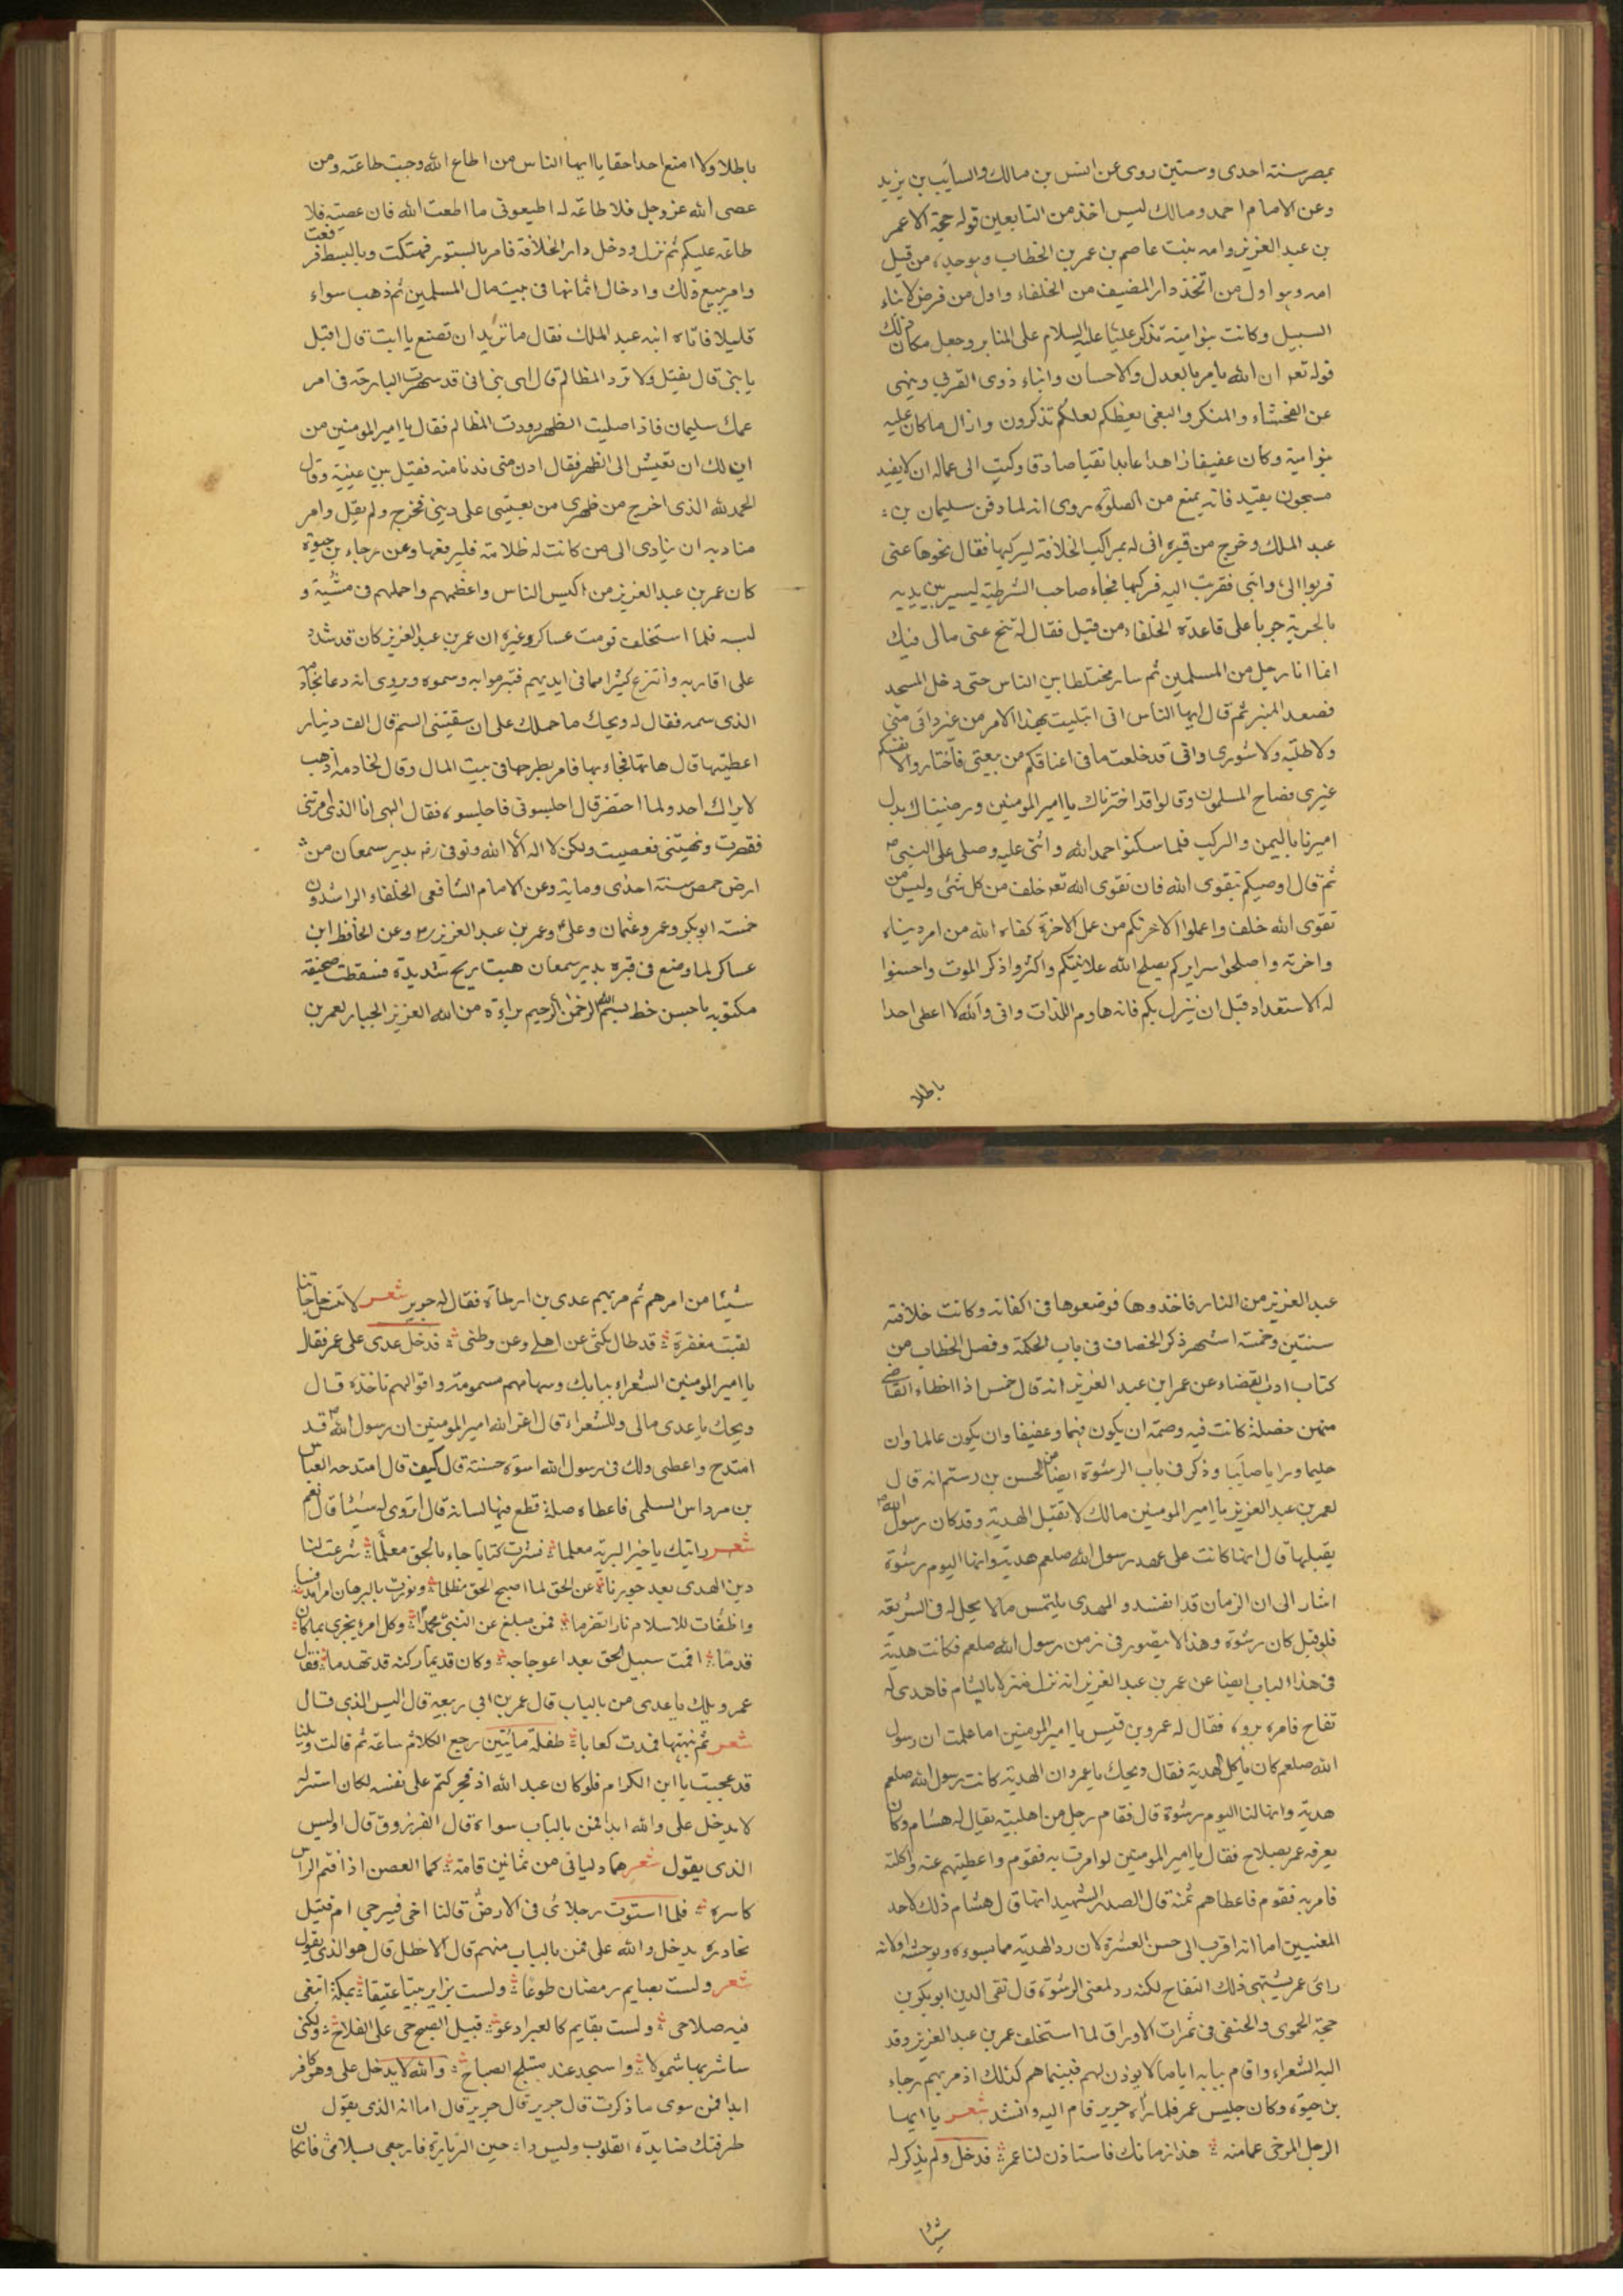 بمصر سنة احدى وستين روى عن انس بن مالك والسايب بن يزيد
وعن الامام احمد ومالك ليس اخذ من التابعين قوله حجة الا عمر
بن عبد العزيز وامه بنت عاصم بن عمر بن الخطاب وهو جده من قبل
امه وهو اول من اتخذ دار المضيف من الخلفاء واول من فرض لابناء
السبيل وكانت بنو امية تذكر عليا عليه السلام على المنابر وجعل مكان ذلك
قوله تعه ان الله يامر بالعدل والاحسان وايتاء ذوى القربى وينهى
عن الفحشاء والمنكر والبغى يعظكم لعلكم تذكرون وازال ما كان عليه
بنو امية وكان عفيفا زاهدا عابدا تقيا صادقا وكتب الى عماله ان لا يقيد
مسجون بقيد فانه يمنع من الصلوة روى انه لما دفن سليمان بن
عبد الملك وخرج من قبره اتى له بمراكب الخلافة ليركبها فقال نحوها عنى
قربوا الى دابتى فقربت اليه فركبها فجاء صاحب الشرطة ليسير بين يديه
بالحربة جريا على قاعدة الخلفاء من قبل فقال له تنح عنى مالى فيك
انما انا رجل من المسلمين ثم سار مختلطا بين الناس حتى دخل المسجد
فصعد المنبر ثم قال ايها الناس انى ابتليت بهذا الامر من غير راى منى
ولا طلبة ولا شورى وانى قد خلعت ما فى اعناقكم من بيعتى فاختاروا لانفسكم
غيرى فصاح المسلمون وقالوا قد اخترناك يا امير المومنين ورضيناك بدل
اميرنا باليمن والبركت فلما سكتوا حمد الله واثنى عليه وصلى على النبى صم
ثم قال اوصيكم بتقوى الله فان تقوى الله تعه خلف من كل شئ وليس من
تقوى الله خلف واعملوا لاخرتكم من عمل لاخرة كفاه الله من امر دنياه
واخرته واصلحوا سرايركم يصلح الله علانيتكم واكثروا ذكر الموت واحسنوا
له الاستعداد قبل ان ينزل بكم فانه هادم اللذات وانى والله لا اعطى احدا
باطلا
باطلا ولا امنع احدا حقا يا ايها الناس من اطاع الله وجبت طاعته ومن
عصى الله عز وجل فلا طاعة له اطيعونى ما اطعت الله فان عصيته فلا
طاعة عليكم ثم نزل ودخل دار الخلافة فامر بالستور فهتكت وبالبسط فرفعت
وامر ببيع ذلك وادخال اثمانها فى بيت مال المسلمين ثم ذهب سواء
قليلا فاتاه ابنه عبد الملك فقال ما تريد ان تصنع يا ابت قال اقيل
يا بنى قال تقيل ولا ترد المظالم قال اى بنى انى قد سهرت البارحة فى امر
عمك سليمان فاذا صليت الظهر رددت المظالم فقال يا امير المومنين من
اين لك ان تعيش الى الظهر فقال ادن منى فدنا منه فقبل بين عينيه وقال
الحمد لله الذى اخرج من ظهرى من يعينى على دينى فخرج ولم يقل وامر
مناديه ان ينادى الى من كانت له ظلامة فليرفعها وعن رجاء بن حيوة
كان عمر بن عبد العزيز من اكيس الناس واعظمهم واجملهم فى مشيه و
لبسه فلما استخلف قومت عساكر وغيره ان عمر بن عبد العزيز كان قد شدد
على اقاربه وانتزع كثيرا مما فى ايديهم فتبرموا به وسموه ويروى انه دعا بخادمه
الذى سمه فقال له ويحك ما حملك على ان سقيتنى السم قال الف دينار
اعطيتها قال هاتها فجاء بها فامر بطرحها فى بيت المال وقال لخادمه اذهب
لا يراك احد ولما احتضر قال اجلسونى فاجلسوه فقال الهى انا الذى امرتنى
فقصرت ونهيتنى فعصيت ولكن لا اله الا الله وتوفى رضه بدير سمعان من
ارض حمص سنة احدى وماية وعن الامام الشافعى الخلفاء الراشدون
خمسة ابو بكر وعمر وعثمان وعلى وعمر بن عبد العزيز رض وعن الحافظ ابن
عساكر لما وضع فى قبره بدير سمعان هبت ريح شديدة فسقطت صحيفة
مكتوبة باحسن خط بسم الله الرحمن الرحيم براءة من الله العزيز الجبار لعمر بن
عبد العزيز من النار فاخذوها فوضعوها فى اكفانه وكانت خلافته
سنتين وخمسة اشهر ذكر الخصاف فى باب الحكمة وفصل الخطاب من
كتاب ادب القضاء عن عمر ابن عبد العزيز انه قال خمس اذا اخطاء القاضى
منهن خصلة كانت فيه وصمة ان يكون فهما وعفيفا وان يكون عالما وان
حليما وبرايا صايبا وذكر فى باب الرشوة ايضا عن الحسن بن رستم انه قال
لعمر بن عبد العزيز يا امير المومنين مالك لا تقبل الهدية وقد كان رسول الله صم
يقبلها قال انها كانت على عهد رسول الله صلعم هدية وانها اليوم رشوة
اشار الى ان الزمان قد انفسد والمهدى يلتمس ما لا يحل له فى الشريعة
فلو قبل كان رشوة وهذا لا يتصور فى زمن رسول الله صلعم فكانت هدية
فى هذا الباب ايضا عن عمر بن عبد العزيز انه نزل منزلا بالشام فاهدى له
تفاح فامر برده فقال له عمرو بن قيس يا امير المومنين اما علمت ان رسول
الله صلعم كان ياكل الهدية فقال ويحك يا عمر وان الهدية كانت رسول الله صلعم
هدية وانها لنا اليوم رشوة قال فقام رجل من اهل بيته يقال له هشام وكان
يعرفه عمر بصلاح فقال يا امير المومنين لو امرت به فقوم واعطيتهم عنه واكلته
فامر به فقوم فاعطاهم ثمنه قال الصدر الشهيد انما قال هشام ذلك لاحد
المعنيين اما انه اقرب الى حسن العشرة لان رد الهدية مما يسوءه ويوحشه اولانه
راى عمر يشتهى ذلك التفاح لكنه رد لمعنى الرشوة قال تقى الدين ابو بكر بن
حجة الحموى والحنفى فى ثمرات الاوراق لما استخلف عمر بن عبد العزيز وفد
اليه الشعراء واقام ببابه اياما لا يوذن لهم فبينما هم كذلك اذ مر بهم رجاء
بن حيوة وكان جليس عمر فلما راه جرير قام اليه وانشد شعر يا ايها
الرجل المرخى عمامته هذا زمانك فاستاذن لنا عمر فدخل ولم يذكر له
شيئا
شيئا من امرهم ثم مر بهم عدى بن ارطاة فقال له جرير شعر لا تنس حاجاتنا
لقيت مغفرة قد طال مكثى عن اهلى وعن وطنى فدخل عدى على عمر فقال
يا امير المومنين الشعراء ببابك وسهامهم مسمومة واقوالهم نافذة قال
ويحك يا عدى مالى وللشعراء قال اعز الله امير المومنين ان رسول الله صم قد
امتدح واعطى ولك فى رسول الله اسوة حسنة قال كيف قال امتدحه العباس
بن مرداس السلمى فاعطاه صلة قطع فيها لسانه قال اتروى له شيئا قال نعم
شعر رايتك يا خير البرية معلما نشرت كتابا جاء بالحق معلما شرعت لنا
دين الهدى بعد جورنا عن الحق لما اصبح الحق مظلما ونورت بالبرهان امرا مدنسا
واطفات للاسلام نارا تضرما فمن مبلغ عن النبى محمدا وكل امرء يجزى بما كان
قدما اقمت سبيل الحق بعد اعوجاجه وكان قديما ركنه قد تهدما فقال
عمر ويلك يا عدى من بالباب قال عمر بن ابى ربيعه قال اليس الذى قال
شعر ثم نبهتها فمدت كعابا طفلة ما تبين رجع الكلام ساعة ثم قالت ويلتا
قد عجبت يا ابن الكرام فلو كان عبد الله اذ فجر كتم على نفسه لكان استر له
لا يدخل على والله ابدا فمن بالباب سواه قال الفرزوق قال اوليس
الذى يقول شعر هما دليانى من ثمانين قامة كما الغصن اذا فتم الراس
كاسره فلما استوت رجلاى فى الارض قالتا اخى فيرجى ام قتيل
نحاذره يدخل والله على فمن بالباب منهم قال الاخطل قال هو الذى يقول
شعر ولست بصايم رمضان طوعا ولست بزاير بيتا عتيقا بمكة ابتغى
فيه صلاحى ولست بقايم كالعير ادعو قبيل الصبح حى على الفلاح ولكنى
ساشربها شمولا واسجد عند مبتلج الصباح والله لا يدخل على وهو كافر
ابدا فمن سوى ما ذكرت قال جرير قال جرير قال اما انه الذى يقول
طرقتك صايدة القلوب وليس ذا حين الزيارة فارجعى بسلامى فان كان